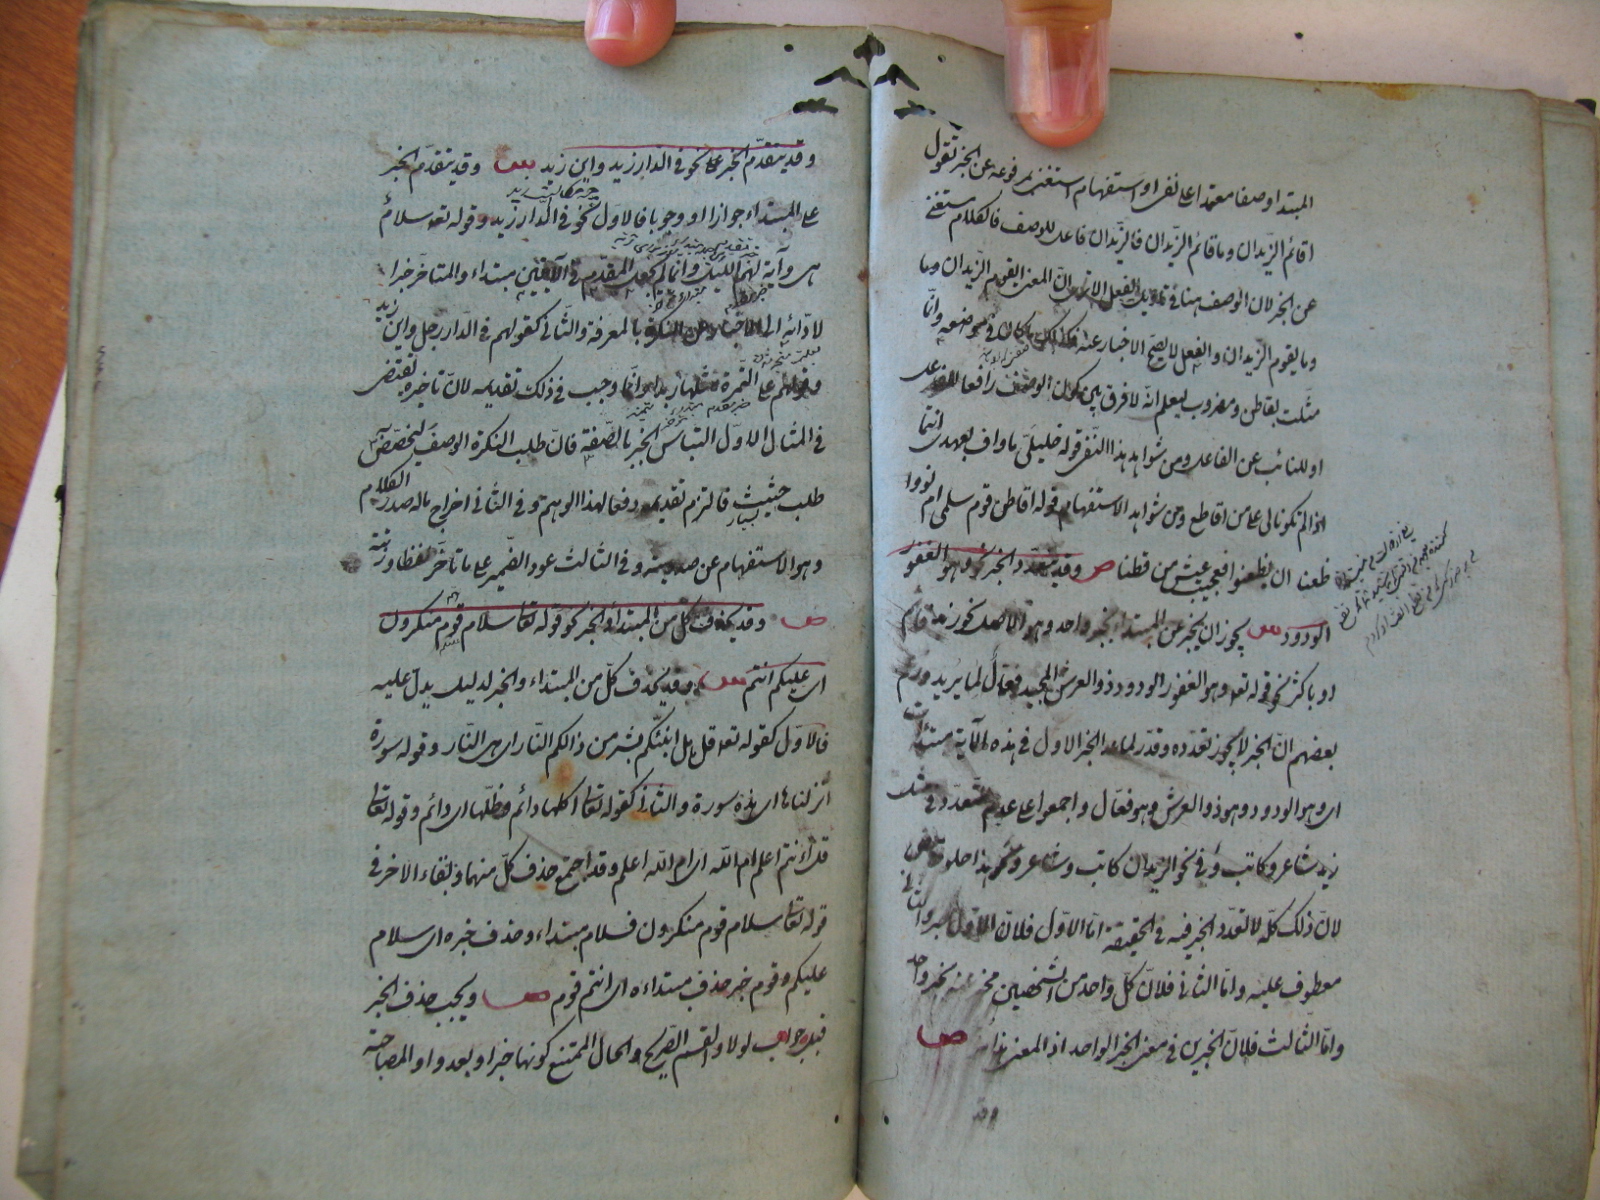 المبتدا وصفا معتمدا على نفى او استفهام استغنى بمرفوعه عن الخبر تقول
اقائم الزيدان وما قائم الزيدان فالزيدان فاعل للوصف فالكلام مستغن
عن الخبر لان الوصف هنا فى تاويل الفعل الا ترى ان المعنى ايقوم الزيدان وما
وما يقوم الزيدان والفعل لا يصح الاخبار عنه فكذلك ما كان فى موضعه وانما
مثلت بقاطن ومضروب ليعلم انه لا فرق بين كون الوصف رافعا للفاعل
او للنائب عن الفاعل ومن شواهد هذا النفى قوله خليلىّ ما واف بعهدى انتما
اذا لم تكونا لى على من اقاطع ومن شواهد الاستفهام قوله اقاطن قوم سلمى ام نووا
ظعنا ان يظعنوا فعجيب عيش من قطنا ص وقد يتعدد الخبر نحو وهو الغفور
الودود ش يجوز ان يخبر عن المبتداء بخبر واحد وهو الاصل نحو زيد قائم
او باكثر نحو قوله تعه وهو الغفور الودود ذو العرش المجيد فعّال لما يريد وزعم
بعضهم انّ الخبر لا يجوز تعدده وقدر لما عدا الخبر الاول فى هذه الآية مبتدات
اى وهو الودود وهو ذو العرش وهو فعّال واجمعوا على عدم التعدد فى مثل
زيد شاعر وكاتب وفى نحو الزيدان كاتب وشاعر وهذا حلو حامض
لانّ ذلك كلّه لا تعدد الخبر فيه فى الحقيقة امّا الاوّل فلانّ الاوّل خبر والثانى
معطوف عليه وامّا الثانى فلانّ كلّ واحد من الشخصين مخبر عنه بخبر واحد
وامّا الثالث فلانّ الخبرين فى معنى الخبر الواحد اذ المعنى هذا مز ص
وقد
وقد يتقدّم الخبر على نحو فى الدار زيد واين زيد ش وقد يتقدّم الخبر
على المبتداء جوازا او وجوبا فالاوّل نحو فى الدّار زيد وقوله تعه سلام
هى وآية لهم الليل وانما لم يجعل المقدّم فى الآيتين مبتداء والمتاخّر خبرا
لادّائه الى الاخبار عن النكرة بالمعرفة والثّانى كقولهم فى الدّار رجل واين زيد
وقولهم على التمرة مثلها زبدا وانّما وجب فى ذلك تقديمه لانّ تاخيره يقتضى
فى المثال الاوّل التباس الخبر بالصّفة فانّ طلب النكرة الوصف لتختصّ
طلب حثيث فالتزم تقديمه دفعا لهذا الوهم وفى الثّانى اخراج ماله صدر الكلام
وهو الاستفهام عن صدريته وفى الثالث عود الضّمير على ما تأخّر لفظا ورتبة
ص وقد يحذف كلّ من المبتداء والخبر نحو قوله تعالى سلام قوم منكرون
اى عليكم انتم ش وقد يحذف كلّ من المبتداء والخبر لدليل يدلّ عليه
فالاوّل كقوله تعه قل هل انبئكم بشر من ذالكم النّار اى هى النّار وقوله سورة
انزلناها اى هذه سورة والثانى كقوله تعالى اكلها دائم وظلّها اى دائم وقوله تعالى
قل ءانتم اعلم ام اللّه اى ام اللّه اعلم وقد اجتمع حذف كلّ منهما وبقاء الاخر فى
قوله تعالى سلام قوم منكرون فسلام مبتداء وحذف خبره اى سلام
عليكم وقوم خبر حذف مبتداءه اى انتم قوم ص ويجب حذف الخبر
قبل جواب لولا والقسم الصّريح والحال الممتنع كونها خبرا وبعد واو المصاحبة